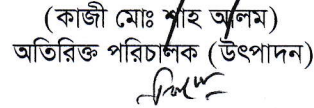 (কাজী মোঃ শাহ আলম)
অতিরিক্ত পরিচালক (উৎপাদন)